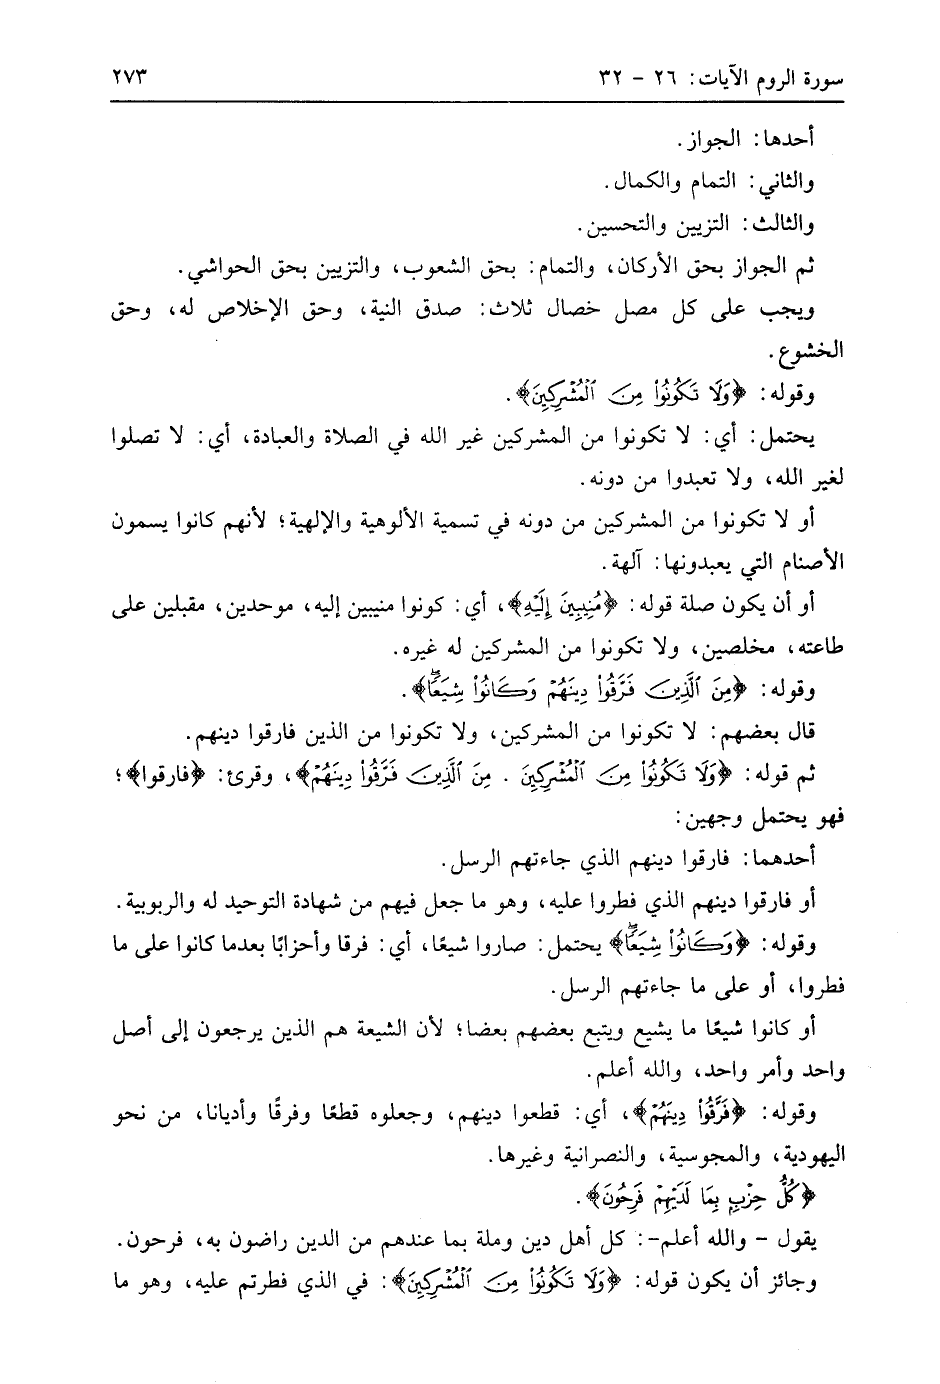 سورة الروم الآيات: ٢٦ - ٣٢ ٢٧٣
أحدها: الجواز.
والثاني: التمام والكمال.
والثالث: التزيين والتحسين.
ثم الجواز بحق الأركان، والتمام: بحق الشعوب، والتزيين بحق الحواشي.
ويجب على كل مصل خصال ثلاث: صدق النية، وحق الإخلاص له، وحق
الخشوع.
وقوله: ﴿وَلَا تَكُونُوا۟ مِنَ ٱلْمُشْرِكِينَ﴾.
يحتمل: أي: لا تكونوا من المشركين غير الله في الصلاة والعبادة، أي: لا تصلوا
لغير الله، ولا تعبدوا من دونه.
أو لا تكونوا من المشركين من دونه في تسمية الألوهية والإلهية؛ لأنهم كانوا يسمون
الأصنام التي يعبدونها: آلهة.
أو أن يكون صلة قوله: ﴿مُنِيبِينَ إِلَيْهِ﴾، أي: كونوا منيبين إليه، موحدين، مقبلين على
طاعته، مخلصين، ولا تكونوا من المشركين له غيره.
وقوله: ﴿مِنَ ٱلَّذِينَ فَرَّقُوا۟ دِينَهُمْ وَكَانُوا۟ شِيَعًاۖ﴾.
قال بعضهم: لا تكونوا من المشركين، ولا تكونوا من الذين فارقوا دينهم.
ثم قوله: ﴿وَلَا تَكُونُوا۟ مِنَ ٱلْمُشْرِكِينَ . مِنَ ٱلَّذِينَ فَرَّقُوا۟ دِينَهُمْ﴾، وقرئ: ﴿فارقوا﴾؛
فهو يحتمل وجهين:
أحدهما: فارقوا دينهم الذي جاءتهم الرسل.
أو فارقوا دينهم الذي فطروا عليه، وهو ما جعل فيهم من شهادة التوحيد له والربوبية.
وقوله: ﴿وَكَانُوا۟ شِيَعًاۖ﴾ يحتمل: صاروا شيعًا، أي: فرقا وأحزابًا بعدما كانوا على ما
فطروا، أو على ما جاءتهم الرسل.
أو كانوا شيعًا ما يشيع ويتبع بعضهم بعضا؛ لأن الشيعة هم الذين يرجعون إلى أصل
واحد وأمر واحد، والله أعلم.
وقوله: ﴿فَرَّقُوا۟ دِينَهُمْ﴾، أي: قطعوا دينهم، وجعلوه قطعًا وفرقًا وأديانا، من نحو
اليهودية، والمجوسية، والنصرانية وغيرها.
﴿كُلُّ حِزْبٍ بِمَا لَدَيْهِمْ فَرِحُونَ﴾.
يقول - والله أعلم-: كل أهل دين وملة بما عندهم من الدين راضون به، فرحون.
وجائز أن يكون قوله: ﴿وَلَا تَكُونُوا۟ مِنَ ٱلْمُشْرِكِينَ﴾: في الذي فطرتم عليه، وهو ما